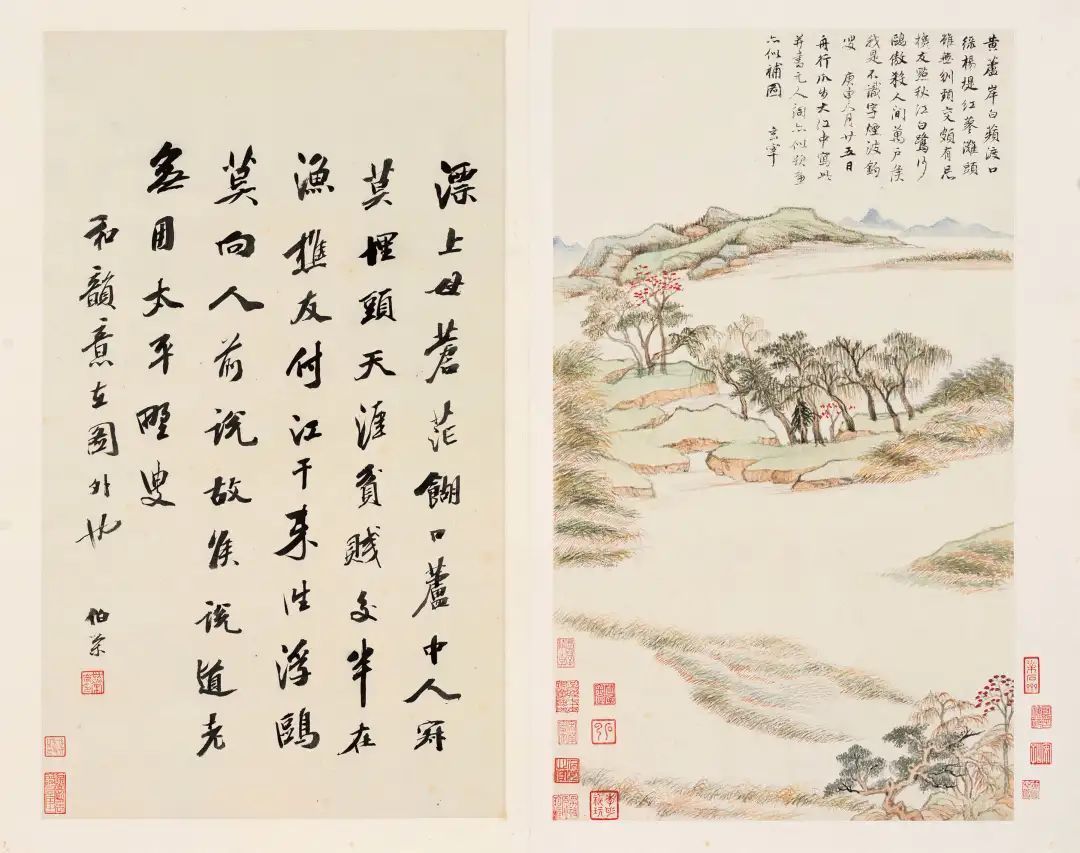 黃蘆岸白蘋渡口
綠楊堤紅蓼灘頭
雖無刎頸交頗有忘
機友點秋江白鷺沙
鷗傲殺人間萬戶侯
我是不識字煙波釣
叟 庚申八月廿五日
舟行瓜步大江中寫此
并書元人詞亦似題畫
亦似補圖 玄宰
漂上母蒼茫餬口蘆中人
莫埋頭天涯貧賤交半在
漁樵友付江干來往浮鷗
莫向人前說故侯說道老
無用太平野叟
和韻意在圖外也 伯榮